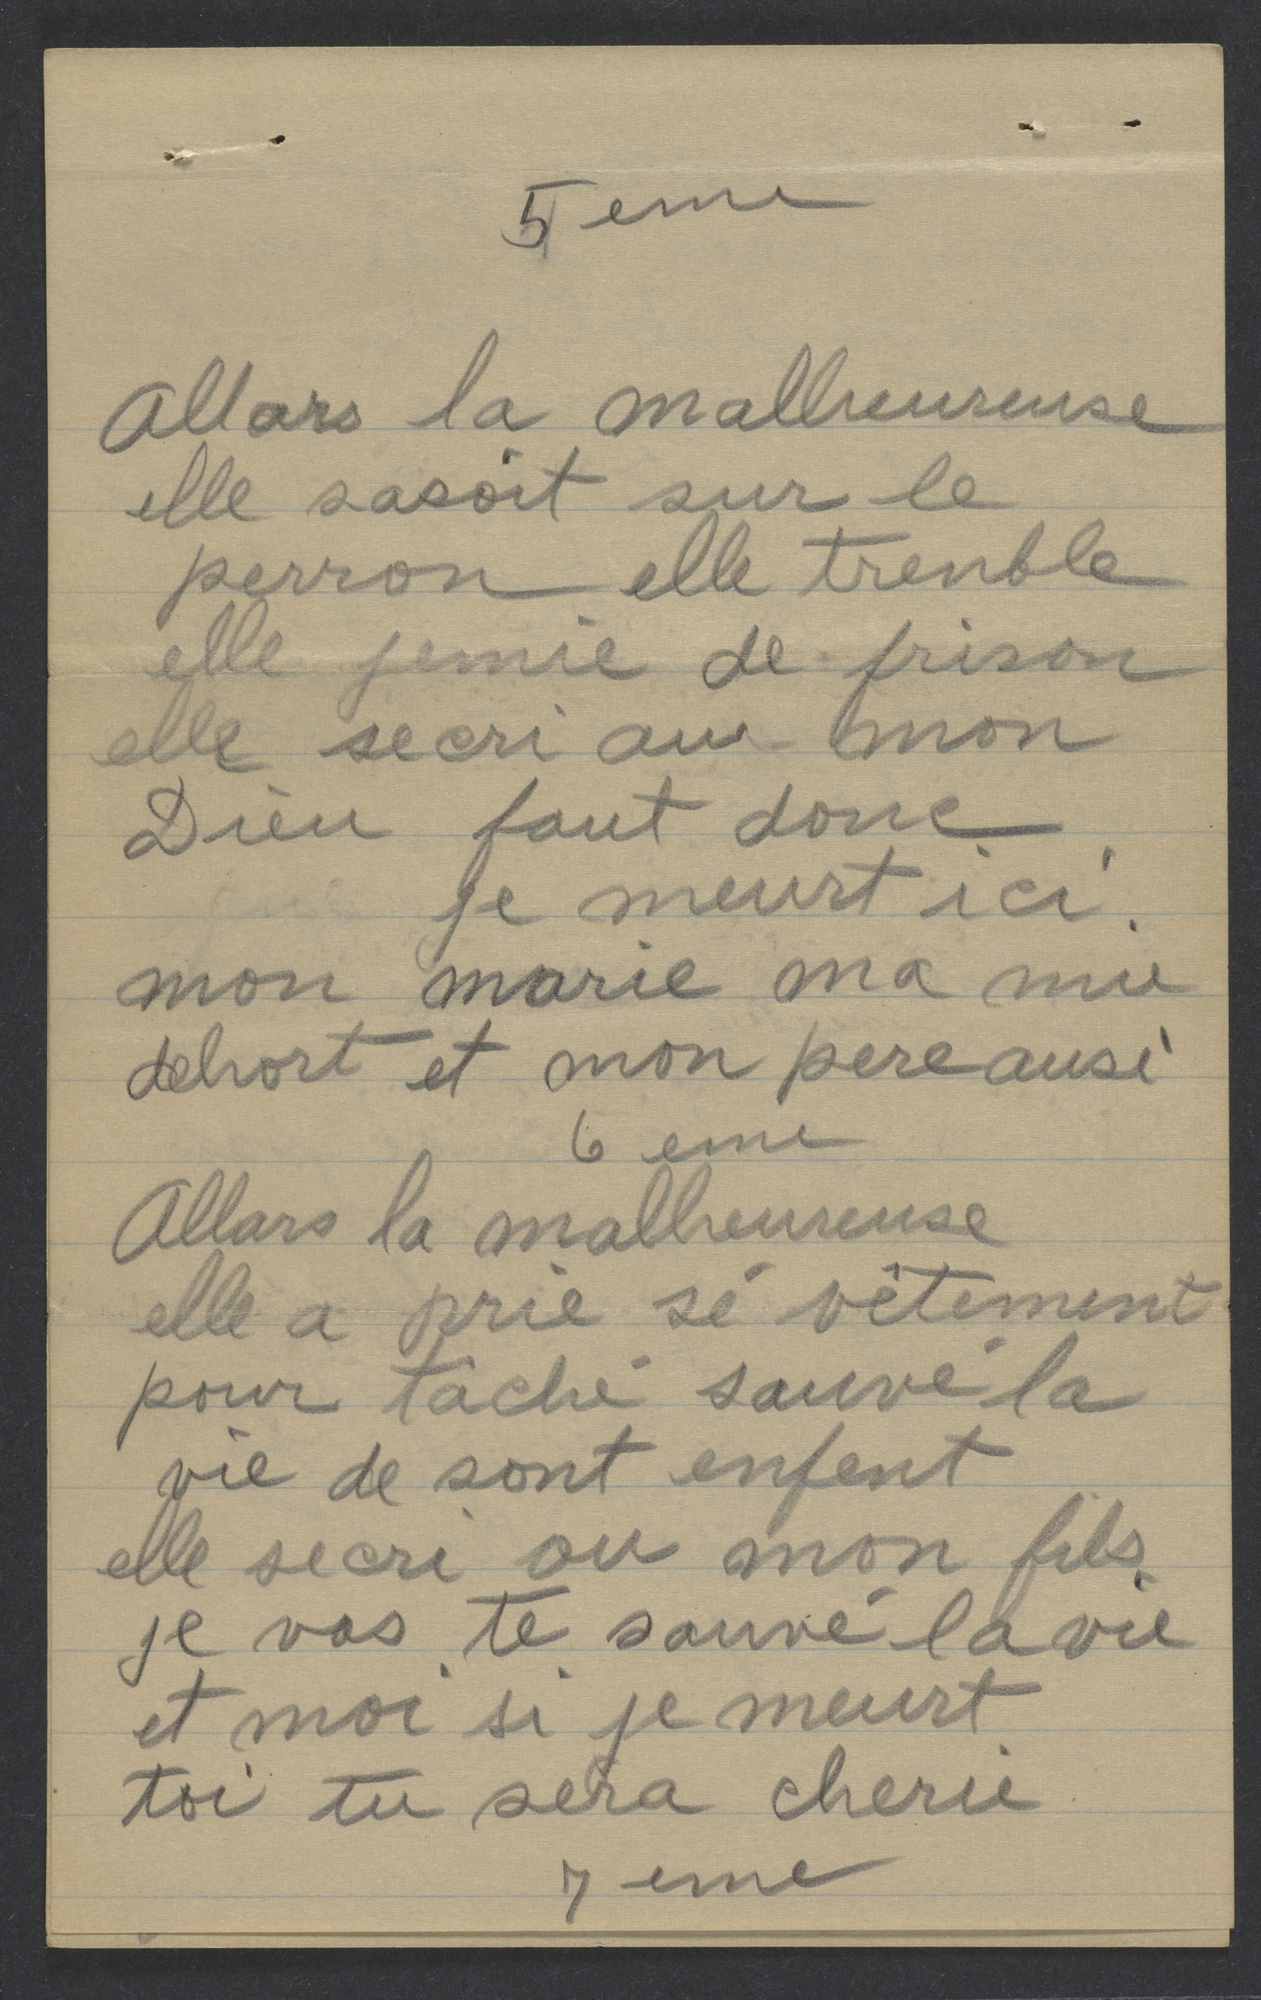 5 eme
Allors la malheureuse
elle sasoit sur le
perron elle trenble
elle jemie de frison
elle secri au mon
Dieu faut donc
je meurt ici
mon marie ma mie
dehort et mon pere ausi
6 eme
Allors la malheureuse
elle a prie sé vêtement
pour tâché sauvé la
vie de sont enfent
elle secri ou mon fils
je vas te sauvé la vie
et moi si je meurt
toi tu sera cherie
7 eme